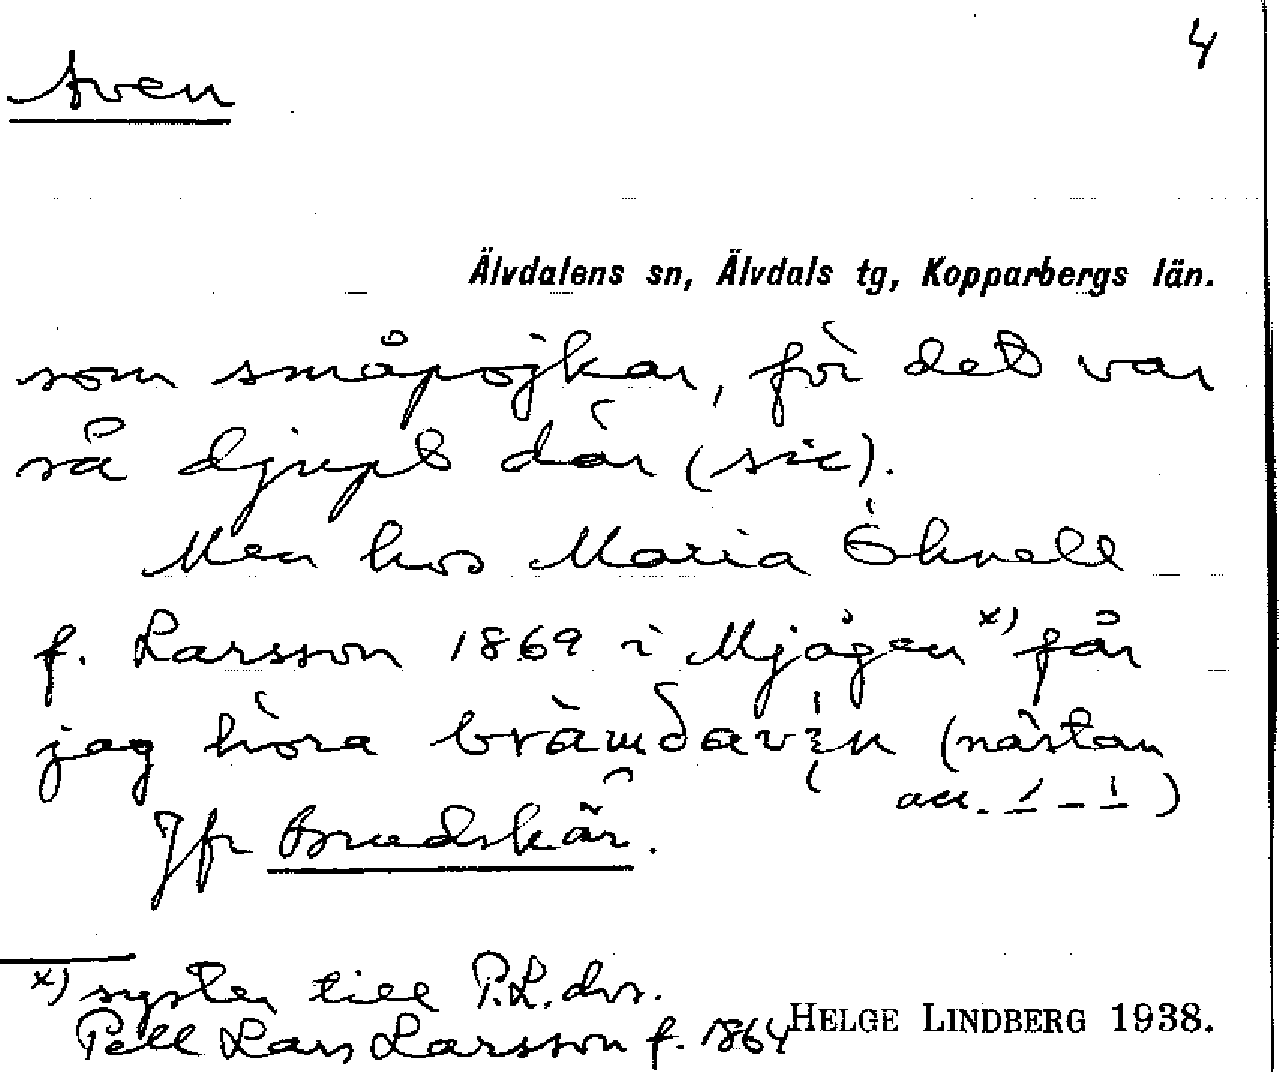 4
Aven
Älvdalens sn, Älvdals tg, Kopparbergs län.
som småpojkar, för det var
så djupt där (sic).
Men hos Maria Öhnell
f. Larsson 1869 i Mjågen x) får
jag höra (nästan
acc. )
Jfr Brudskär.
x) syster till P.L. dvs.
Pell Lars Larsson f. 1864
HELGE LINDBERG 1938.